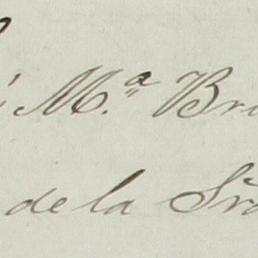 M.ª Bri
de la Sra